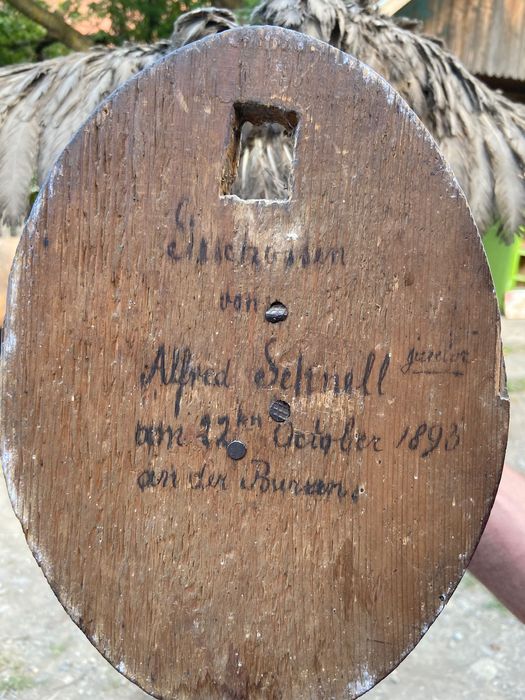 Geschossen
von
Alfred Schnell junior
am 22ten October 1893
an der Burian.